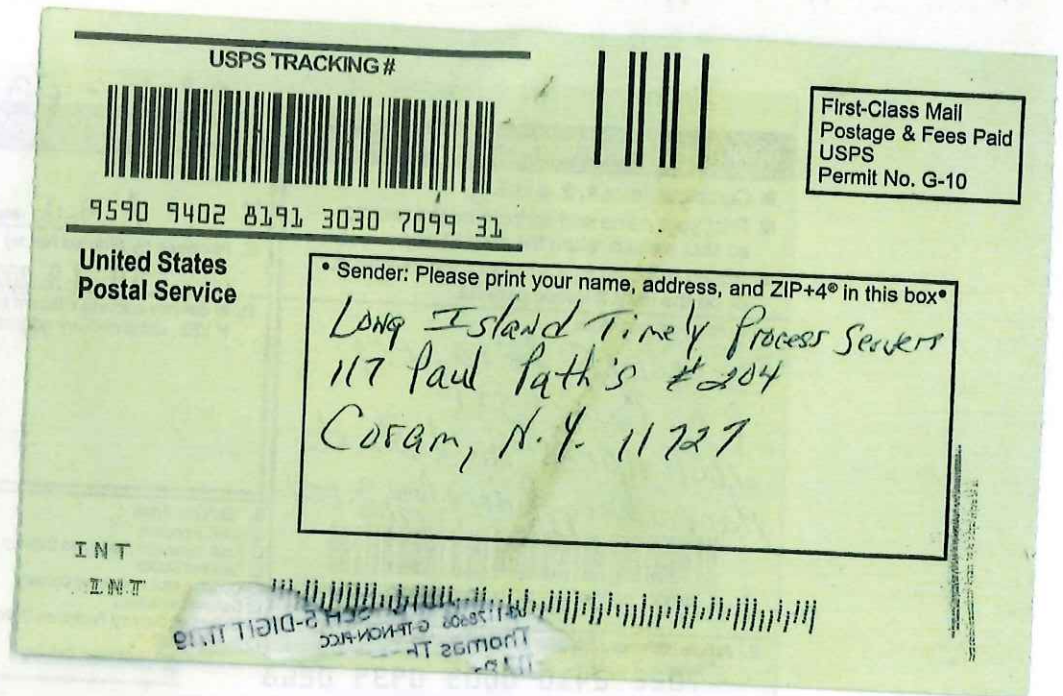 USPS TRACKING #
9590 9402 8191 3030 7099 31
First-Class Mail
Postage & Fees Paid
USPS
Permit No. G-10
United States
Postal Service
• Sender: Please print your name, address, and ZIP+4® in this box•
Long Island Timely Process Servers
117 Paul Path's #204
Coram, N.Y. 11727
INT
INT
5-DIGIT 117
Thomas